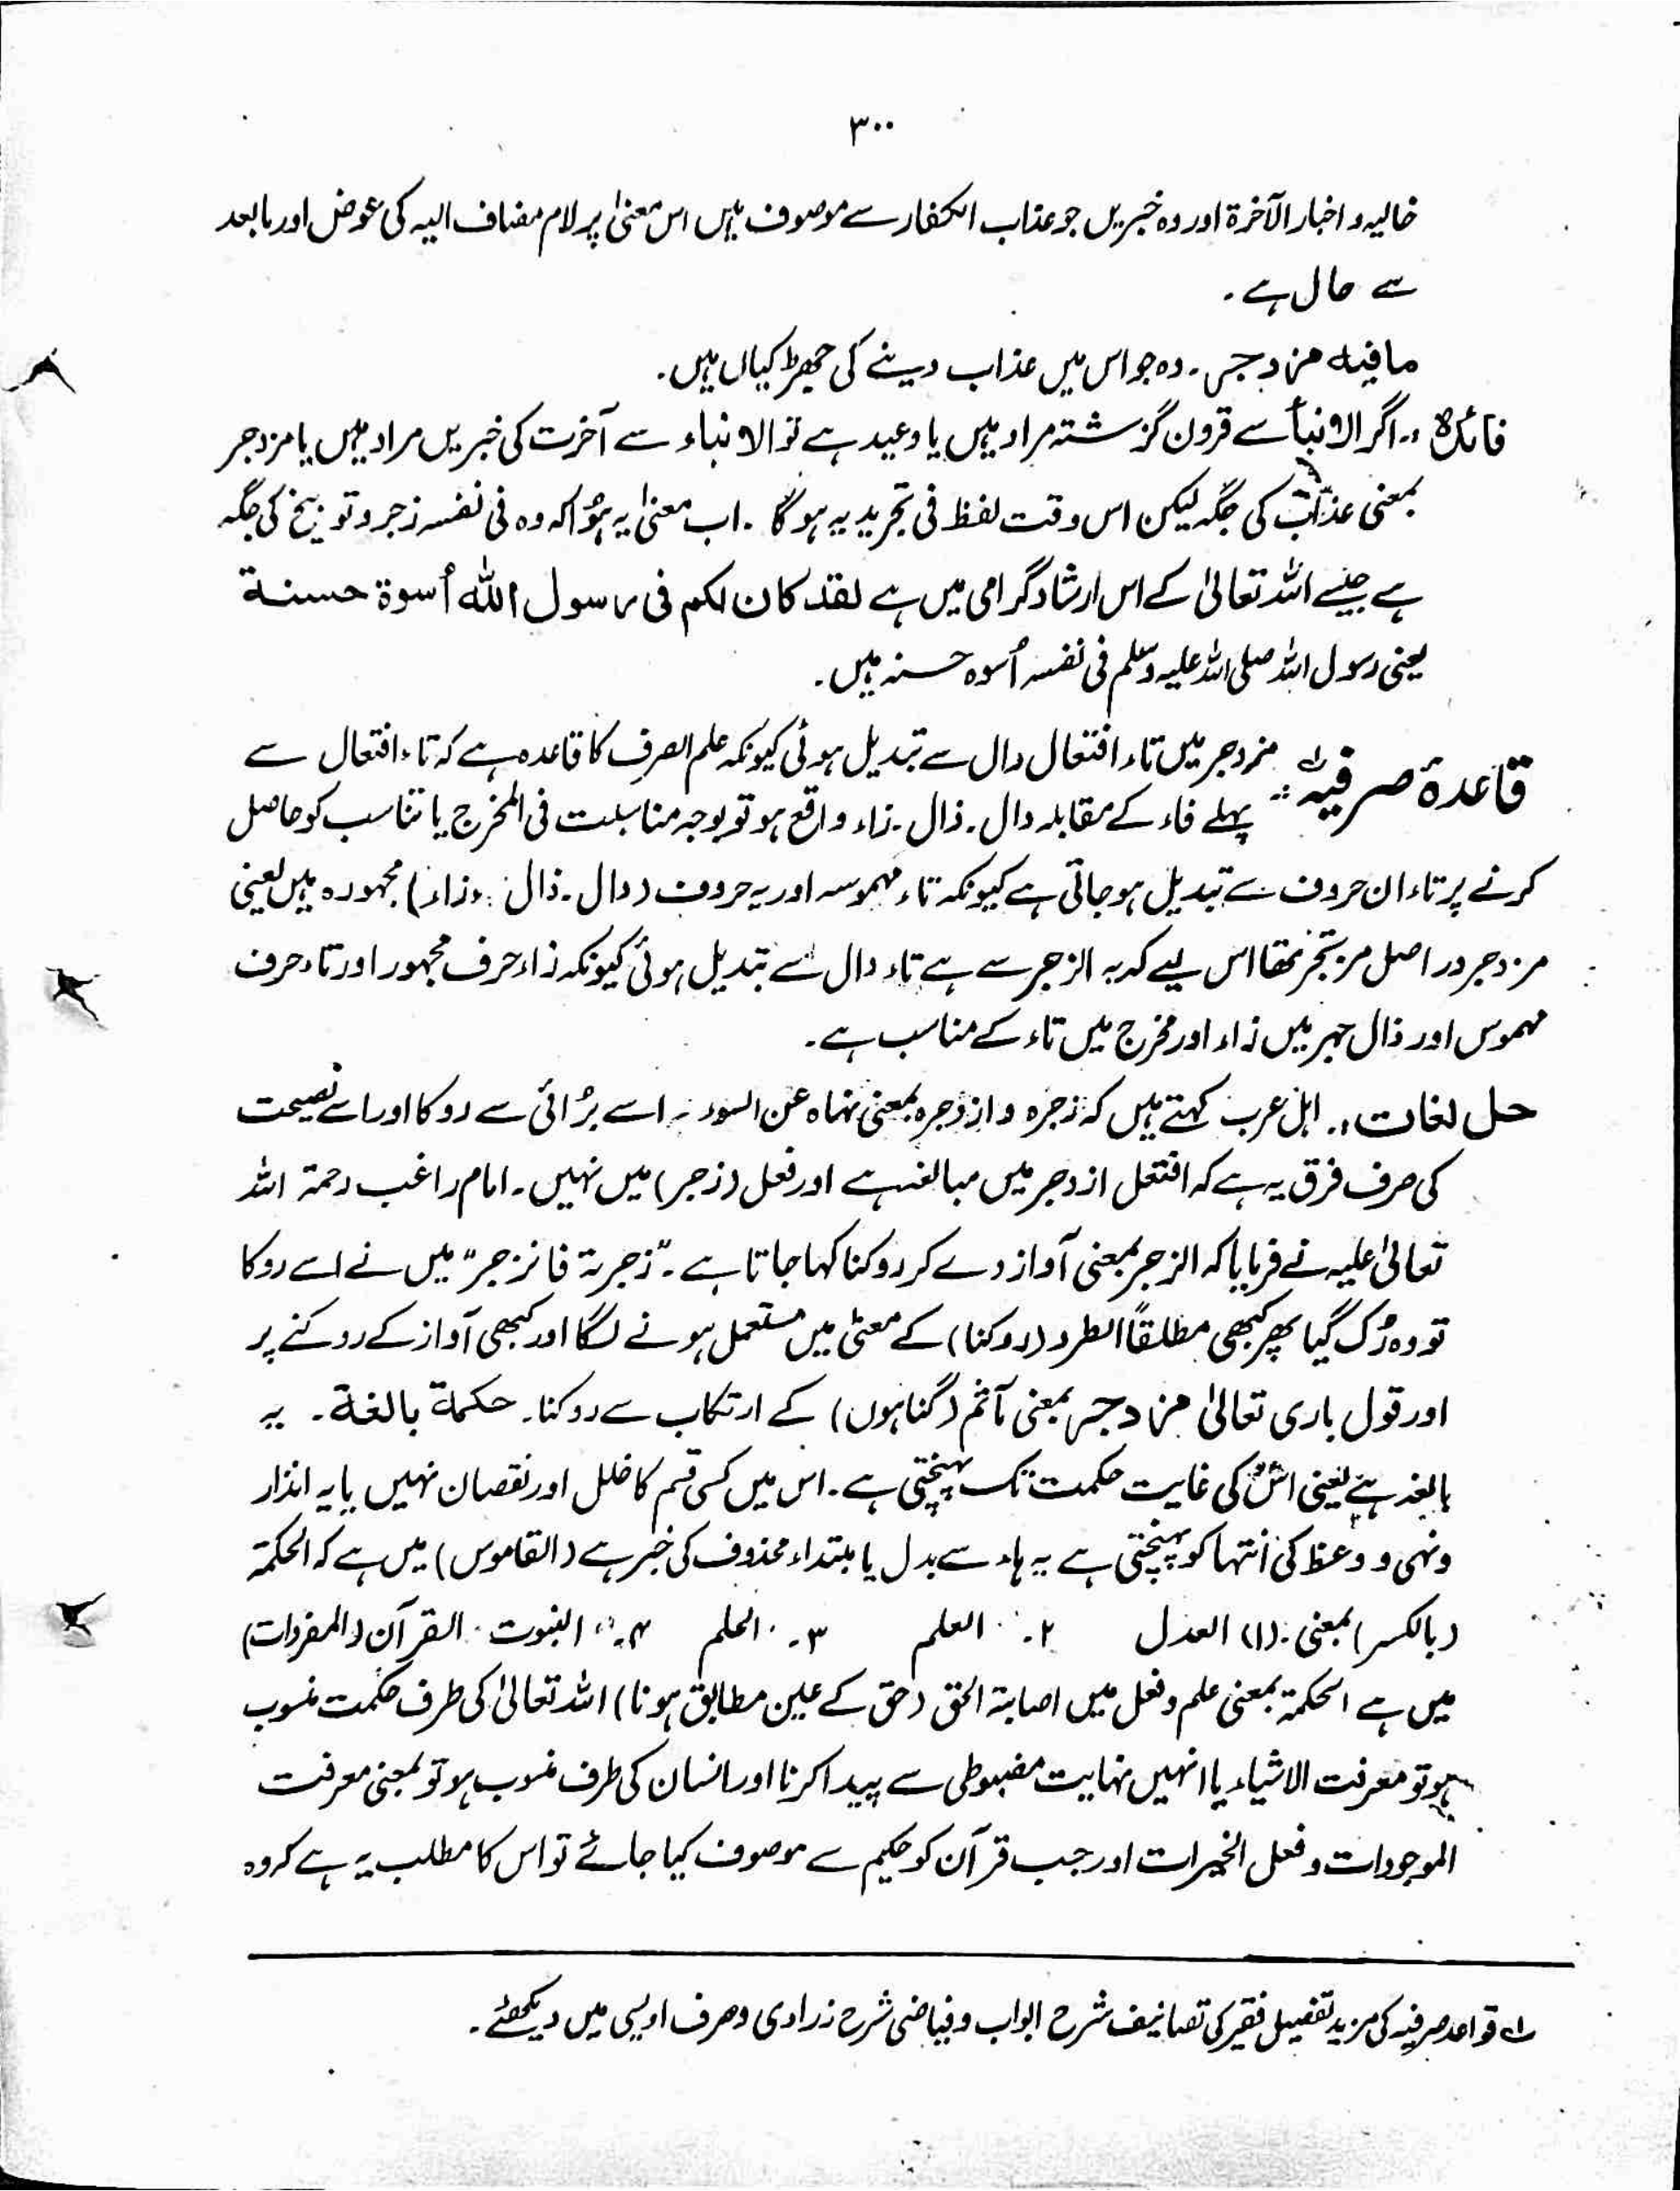 ۳۰۰
خالیہ و اخبار الآخرۃ اور وہ خبریں جو عذاب الکفار سے موصوف ہیں اس معنیٰ پر لام مضاف الیہ کی عوض اور مابعد
سے حال ہے ۔
مافیہ مزدجر ۔ وہ جو اس میں عذاب دینے کی جھڑکیاں ہیں۔
فائدہ :۔ اگر الانبأ سے قرون گزشتہ مراد ہیں یا وعید ہے تو الانباء سے آخرت کی خبریں مراد ہیں یا مزدجر
بمعنی عذاب کی جگہ لیکن اس وقت لفظ فی تجریدیہ ہوگا ۔ اب معنیٰ یہ ہُوا کہ وہ فی نفسہ زجر و توبیخ کی جگہ
ہے جیسے اللہ تعالیٰ کے اس ارشاد گرامی میں ہے لقد کان لکم فی رسول اللہ اُسوۃ حسنۃ
یعنی رسول اللہ صلی اللہ علیہ وسلم فی نفسہ اُسوہ حسنہ ہیں ۔
قاعدۂ صرفیہ ؎۱ :۔ مزدجر میں تاء افتعال دال سے تبدیل ہوئی کیونکہ علم الصرف کا قاعدہ ہے کہ تاء افتعال سے
پہلے فاء کے مقابلہ دال ۔ ذال ۔ زاء واقع ہو تو بوجہ مناسبت فی المخرج یا تناسب کو حاصل
کرنے پر تاء ان حروف سے تبدیل ہو جاتی ہے کیونکہ تاء مہموسہ اور یہ حروف (دال ۔ ذال ۔ زاء) مجہورہ ہیں یعنی
مزدجر در اصل مزتجر تھا اس لیے کہ یہ الزجر سے ہے تاء دال سے تبدیل ہوئی کیونکہ زاء حرف مجہور اور تاء حرف
مہموس اور ذال جہر میں زاء اور مخرج میں تاء کے مناسب ہے ۔
حل لغات :۔ اہل عرب کہتے ہیں کہ زجرہ و ازدجرہ بمعنی نہاہ عن السوء ۔ اسے بُرائی سے روکا اور اسے نصیحت
کی صرف فرق یہ ہے کہ افتعل ازدجر میں مبالغہ ہے اور فعل (زجر) میں نہیں ۔ امام راغب رحمۃ اللہ
تعالیٰ علیہ نے فرمایا کہ الزجر بمعنی آواز دے کر روکنا کہا جاتا ہے ۔ "زجرتہ فانزجر" میں نے اسے روکا
تو وہ رُک گیا پھر کبھی مطلقاً الطرد (روکنا) کے معنیٰ میں مستعمل ہونے لگا اور کبھی آواز کے روکنے پر
اور قول باری تعالیٰ مزدجر بمعنی مآثم (گناہوں) کے ارتکاب سے روکنا۔ حکمۃ بالغۃ ۔ یہ
بالغہ ہے یعنی اس کی غایت حکمت تک پہنچتی ہے ۔ اس میں کسی قسم کا خلل اور نقصان نہیں یا یہ انذار
و نہی و وعظ کی انتہا کو پہنچتی ہے یہ ماء سے بدل یا مبتداء محذوف کی خبر ہے (القاموس) میں ہے کہ الحکمۃ
(بالکسر) بمعنی :۔ (۱) العدل ۲۔ العلم ۳۔ الحلم ۴۔ النبوت ۔ القرآن (المفردات)
میں ہے الحکمۃ بمعنی علم و فعل میں اصابۃ الحق (حق کے عین مطابق ہونا) اللہ تعالیٰ کی طرف حکمت منسوب
ہو تو معرفت الاشیاء یا انہیں نہایت مضبوطی سے پیدا کرنا اور انسان کی طرف منسوب ہو تو بمعنی معرفت
الموجودات و فعل الخیرات اور جب قرآن کو حکیم سے موصوف کیا جائے تو اس کا مطلب یہ ہے کہ وہ
؎۱ قواعد صرفیہ کی مزید تفصیل فقیر کی تصانیف شرح ابواب و فیاضی شرح زرادی و صرف اویسی میں دیکھئے ۔